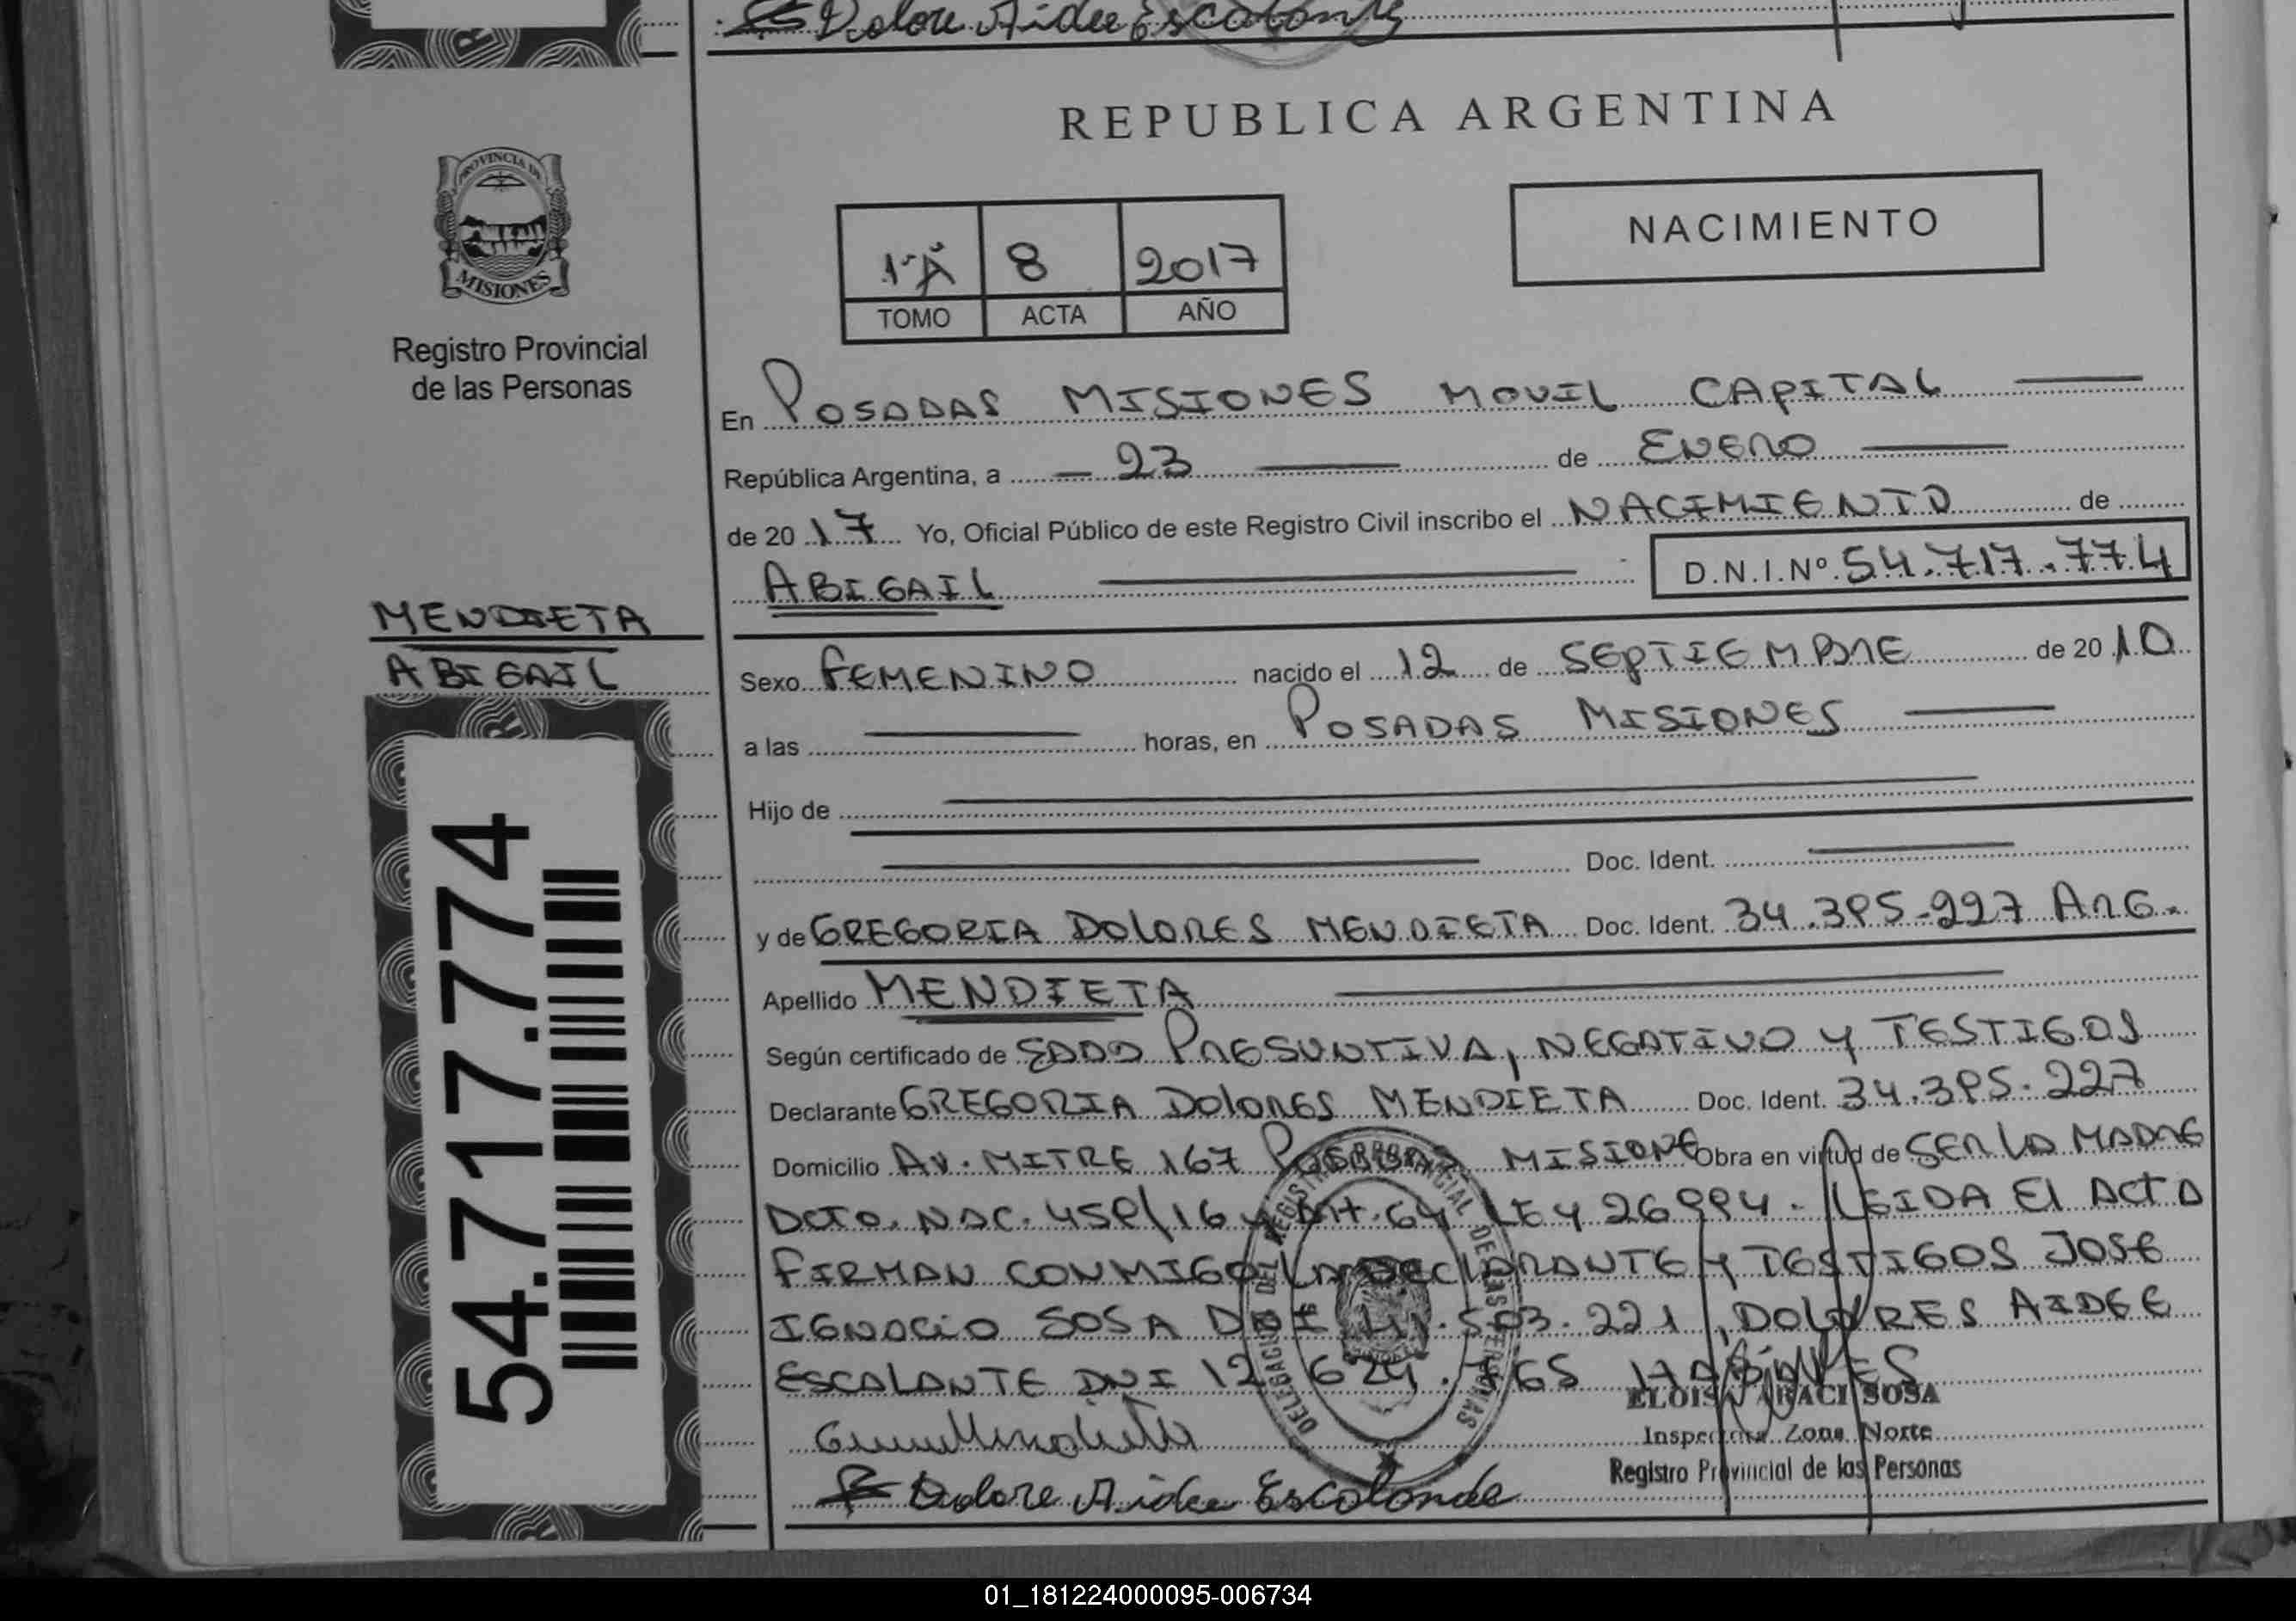 Dolore Aidee Escalante
REPUBLICA ARGENTINA
PROVINCIA DE
MISIONES
Registro Provincial
de las Personas
1ºA 8 2017
TOMO ACTA AÑO
NACIMIENTO
En POSADAS MISIONES MOVIL CAPITAL
República Argentina, a 23 de ENERO
de 20 17 Yo, Oficial Público de este Registro Civil inscribo el NACIMIENTO de
ABIGAIL D.N.I.Nº 54.717.774
MENDIETA
ABIGAIL
Sexo FEMENINO nacido el 12 de SEPTIEMBRE de 20 10
a las horas, en POSADAS MISIONES
Hijo de
Doc. Ident.
y de GREGORIA DOLORES MENDIETA Doc. Ident. 34.395.227 ARG.
Apellido MENDIETA
Según certificado de EDAD PRESUNTIVA, NEGATIVO Y TESTIGOS
Declarante GREGORIA DOLORES MENDIETA Doc. Ident. 34.395.227
Domicilio AV. MITRE 167 POSADAS MISIONES Obra en virtud de SER LA MADRE
DCTO. NAC. 459/16 y Art. 64 LEY 26994. LEIDA El ACTA
FIRMAN CONMIGO LA DECLARANTE Y TESTIGOS JOSE
IGNACIO SOSA DNI .503.221, DOLORES AIDEE
ESCALANTE DNI 12.624. HABILES
ELOISA ARACI SOSA
Inspectora Zona Norte
Registro Provincial de las Personas
Dolore Aidee Escalonde
DELEGACION DEL REGISTRO PROVINCIAL DE LAS PERSONAS
54.717.774
01_181224000095-006734